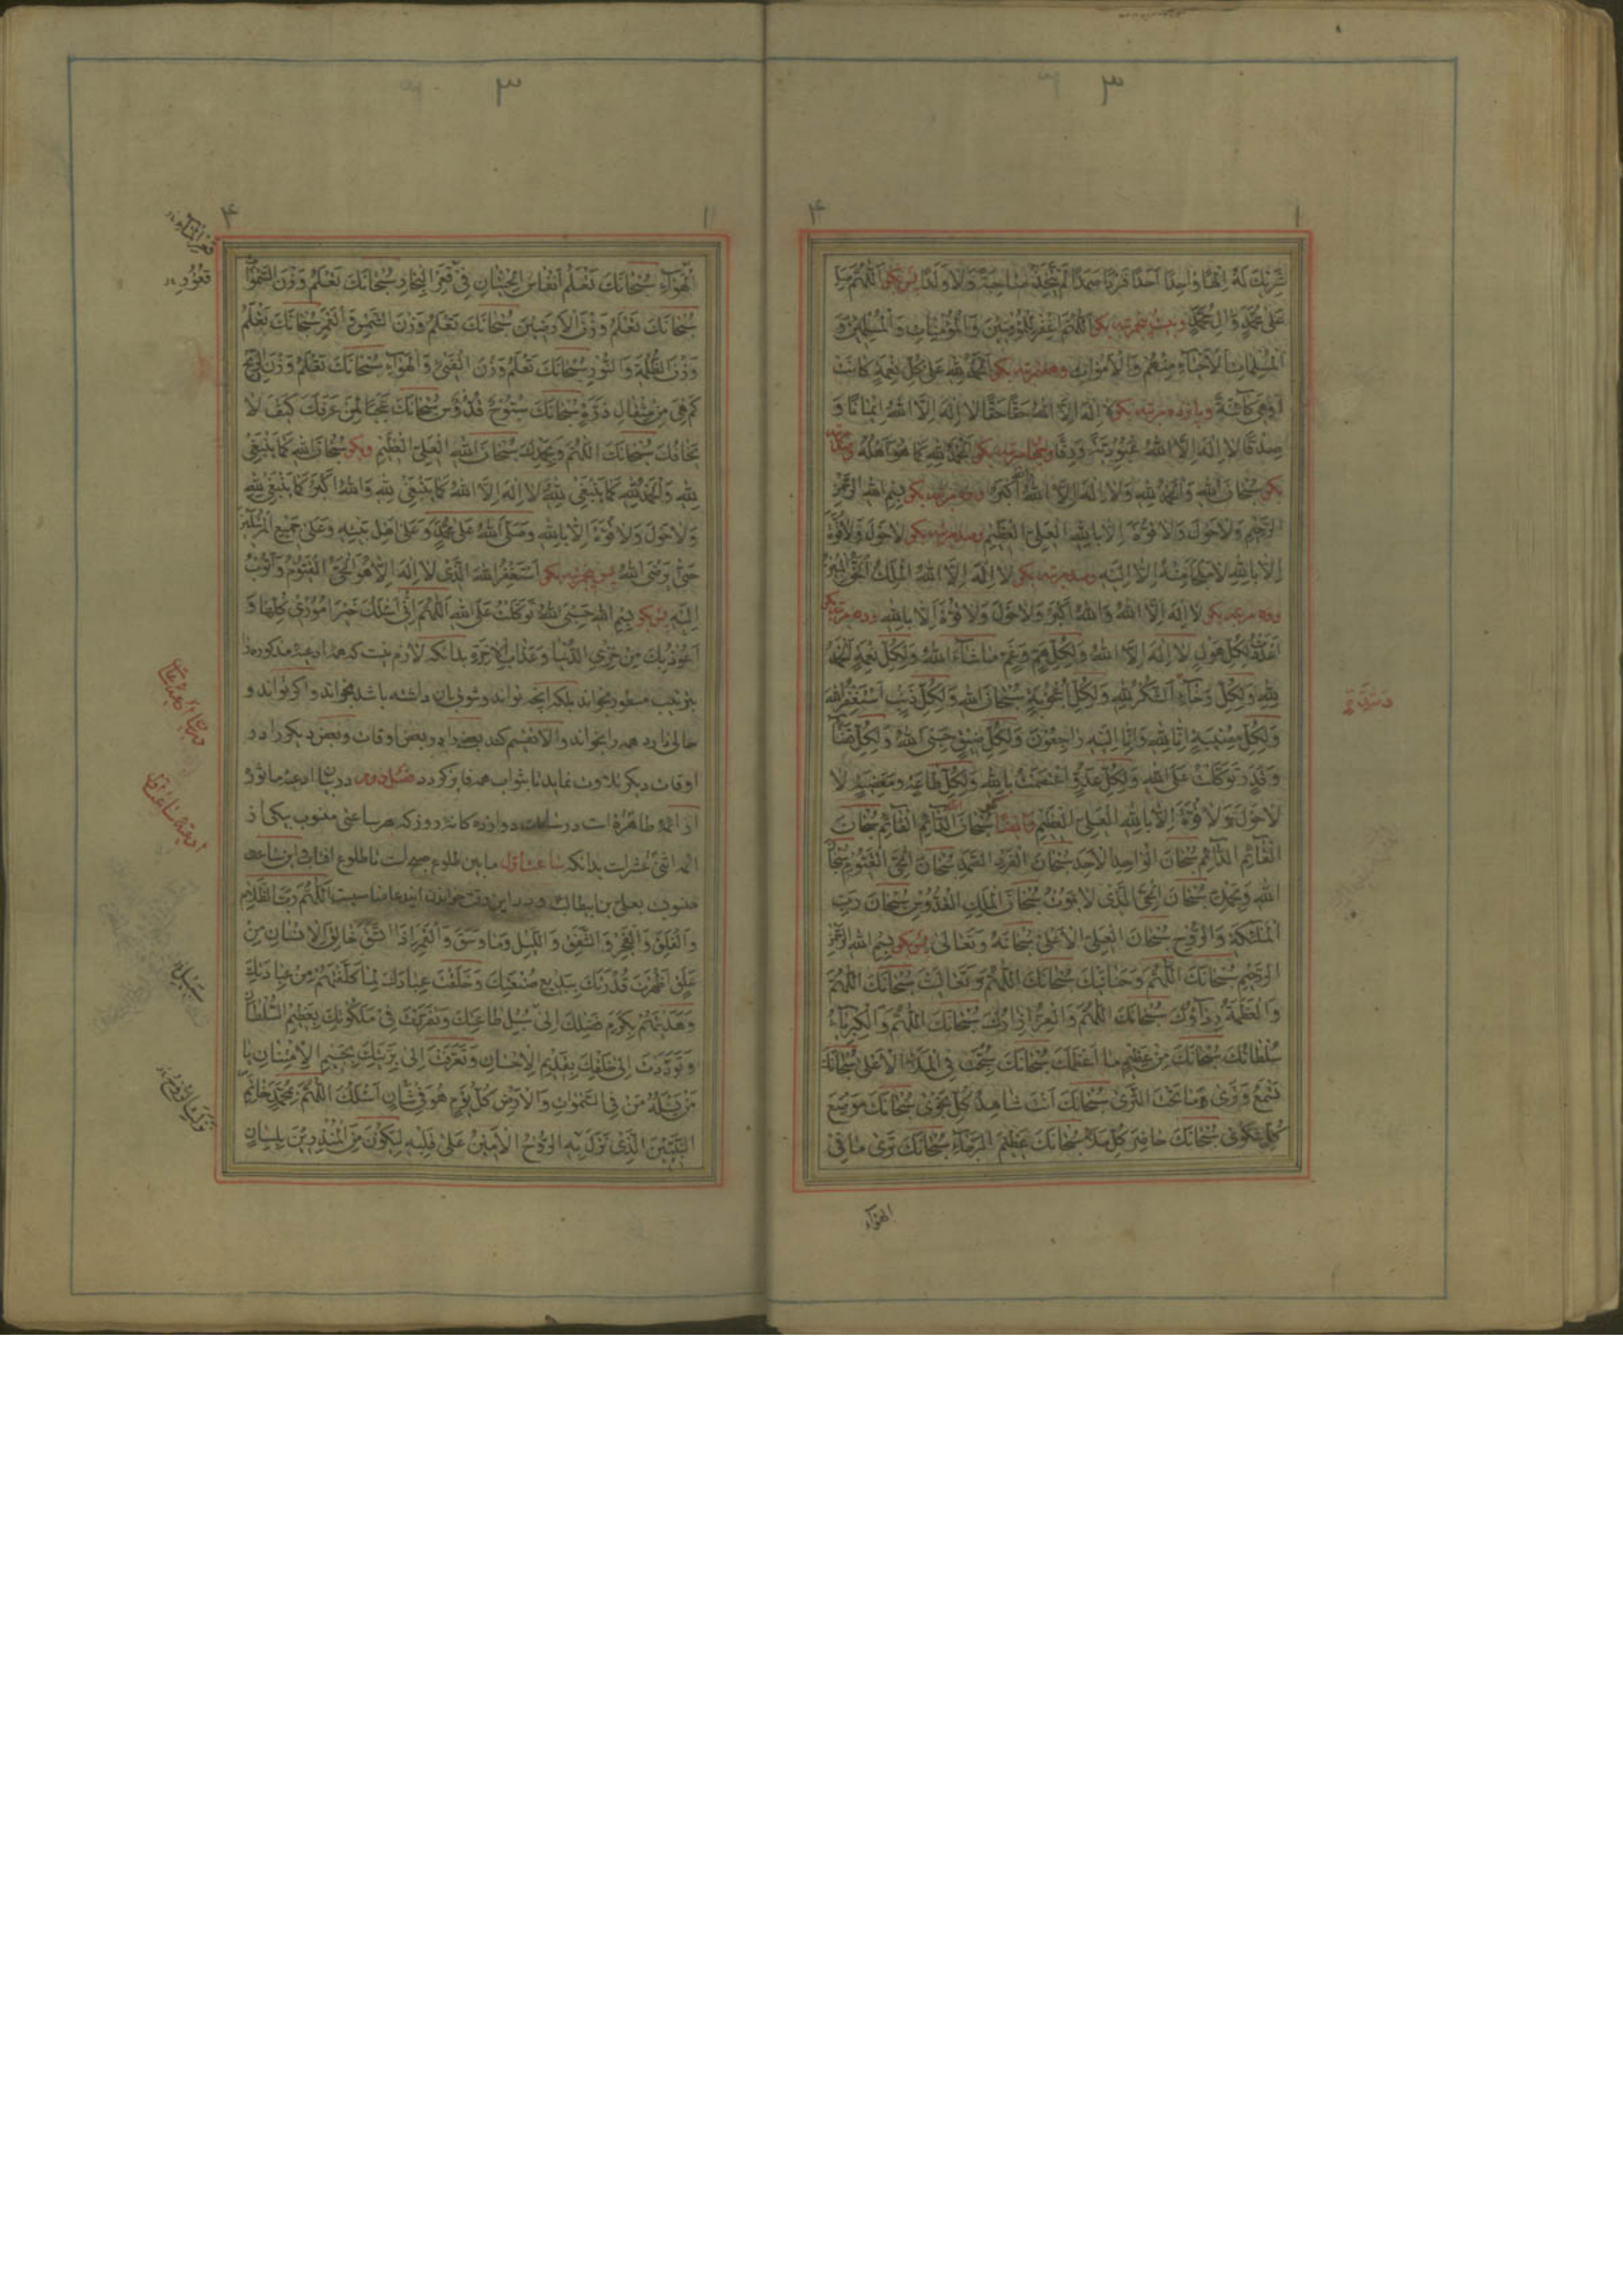 ۳
۴
۱
شَرِيكَ لَهُ اِلهًا وَاحِدًا اَحَدًا فَرْدًا صَمَدًا لَمْ يَتَّخِذْ صَاحِبَةً وَلَا وَلَدًا پس بكو اَللّهُمَّ صَلِّ
عَلى مُحَمَّدٍ وَآلِ مُحَمَّدٍ وبيست وپنج مرتبه بكو اَللّهُمَّ اغْفِرْ لِلْمُؤْمِنِينَ وَالْمُؤْمِنَاتِ وَالْمُسْلِمِينَ وَ
الْمُسْلِمَاتِ الْاَحْيَاءِ مِنْهُمْ وَالْاَمْوَاتِ وهفت مرتبه بكو اَلْحَمْدُ لِلّهِ عَلى كُلِّ نِعْمَةٍ كَانَتْ
اَوْ هِيَ كَائِنَةٌ وپانزده مرتبه بكو لَا اِلهَ اِلَّا اللهُ حَقًّا حَقًّا لَا اِلهَ اِلَّا اللهُ اِيمَانًا وَ
صِدْقًا لَا اِلهَ اِلَّا اللهُ عُبُودِيَّةً وَرِقًّا مرتبه بكو اَلْحَمْدُ لِلّهِ كَمَا هُوَ اَهْلُهُ
بكو سُبْحَانَ اللهِ وَالْحَمْدُ لِلّهِ وَلَا اِلهَ اِلَّا اللهُ وَاللهُ اَكْبَرُ وده مرتبه بكو بِسْمِ اللهِ الرَّحْمنِ
الرَّحِيمِ وَلَا حَوْلَ وَلَا قُوَّةَ اِلَّا بِاللهِ الْعَلِيِّ الْعَظِيمِ وصد مرتبه بكو لَا حَوْلَ وَلَا قُوَّةَ
اِلَّا بِاللهِ لَا مَلْجَأَ مِنْهُ اِلَّا اِلَيْهِ وصد مرتبه بكو لَا اِلهَ اِلَّا اللهُ الْمَلِكُ الْحَقُّ الْمُبِينُ
وده مرتبه بكو لَا اِلهَ اِلَّا اللهُ وَاللهُ اَكْبَرُ وَلَا حَوْلَ وَلَا قُوَّةَ اِلَّا بِاللهِ وده مرتبه بكو
اَعْدَدْتُ لِكُلِّ هَوْلٍ لَا اِلهَ اِلَّا اللهُ وَلِكُلِّ هَمٍّ وَغَمٍّ مَا شَاءَ اللهُ وَلِكُلِّ نِعْمَةٍ اَلْحَمْدُ
لِلّهِ وَلِكُلِّ رَخَاءٍ اَلشُّكْرُ لِلّهِ وَلِكُلِّ اُعْجُوبَةٍ سُبْحَانَ اللهِ وَلِكُلِّ ذَنْبٍ اَسْتَغْفِرُ اللهَ
وَلِكُلِّ مُصِيبَةٍ اِنَّا لِلّهِ وَاِنَّا اِلَيْهِ رَاجِعُونَ وَلِكُلِّ ضِيقٍ حَسْبِيَ اللهُ وَلِكُلِّ قَضَاءٍ
وَقَدَرٍ تَوَكَّلْتُ عَلَى اللهِ وَلِكُلِّ عَدُوٍّ اعْتَصَمْتُ بِاللهِ وَلِكُلِّ طَاعَةٍ وَمَعْصِيَةٍ لَا
لَا حَوْلَ وَلَا قُوَّةَ اِلَّا بِاللهِ الْعَلِيِّ الْعَظِيمِ سُبْحَانَ الدَّائِمِ الْقَائِمِ سُبْحَانَ
الْقَائِمِ الدَّائِمِ سُبْحَانَ الْوَاحِدِ الْاَحَدِ سُبْحَانَ الْفَرْدِ الصَّمَدِ سُبْحَانَ الْحَيِّ الْقَيُّومِ سُبْحَانَ
اللهِ وَبِحَمْدِهِ سُبْحَانَ الْحَيِّ الَّذِي لَا يَمُوتُ سُبْحَانَ الْمَلِكِ الْقُدُّوسِ سُبْحَانَ رَبِّ
الْمَلئِكَةِ وَالرُّوحِ سُبْحَانَ الْعَلِيِّ الْاَعْلى سُبْحَانَهُ وَتَعَالى پس بكو بِسْمِ اللهِ الرَّحْمنِ
الرَّحِيمِ سُبْحَانَكَ اللّهُمَّ وَحَنَانَيْكَ سُبْحَانَكَ اللّهُمَّ وَتَعَالَيْتَ سُبْحَانَكَ اللّهُمَّ
وَالْعَظَمَةُ رِدَاؤُكَ سُبْحَانَكَ اللّهُمَّ وَالْعِزُّ اِزَارُكَ سُبْحَانَكَ اللّهُمَّ وَالْكِبْرِيَاءُ
سُلْطَانُكَ سُبْحَانَكَ مِنْ عَظِيمٍ مَا اَعْظَمَكَ سُبْحَانَكَ سُبِّحْتَ فِي الْمَلَاِ الْاَعْلى سُبْحَانَكَ
تَسْمَعُ وَتَرى مَا تَحْتَ الثَّرى سُبْحَانَكَ اَنْتَ شَاهِدُ كُلِّ نَجْوى سُبْحَانَكَ مَوْضِعَ
كُلِّ شَكْوى سُبْحَانَكَ حَاضِرَ كُلِّ مَلَاٍ سُبْحَانَكَ عَظِيمَ الرَّجَاءِ سُبْحَانَكَ تَرى مَا فِي
الهَوَاء
۳
۴
۱
الْهَوَاءِ سُبْحَانَكَ تَعْلَمُ اَنْفَاسَ الْحِيتَانِ فِي قَعْرِ الْبِحَارِ سُبْحَانَكَ تَعْلَمُ وَزْنَ السَّموَاتِ
سُبْحَانَكَ تَعْلَمُ وَزْنَ الْاَرَضِينَ سُبْحَانَكَ تَعْلَمُ وَزْنَ الشَّمْسِ وَالْقَمَرِ سُبْحَانَكَ تَعْلَمُ
وَزْنَ الظُّلْمَةِ وَالنُّورِ سُبْحَانَكَ تَعْلَمُ وَزْنَ الْفَيْءِ وَالْهَوَاءِ سُبْحَانَكَ تَعْلَمُ وَزْنَ الرِّيحِ
كَمْ هِيَ مِنْ مِثْقَالِ ذَرَّةٍ سُبْحَانَكَ سُبُّوحٌ قُدُّوسٌ سُبْحَانَكَ عَجَبًا لِمَنْ عَرَفَكَ كَيْفَ لَا
يَخَافُكَ سُبْحَانَكَ اللّهُمَّ وَبِحَمْدِكَ سُبْحَانَ اللهِ الْعَلِيِّ الْعَظِيمِ وبكو سُبْحَانَ اللهِ كَمَا يَنْبَغِي
لِلّهِ وَالْحَمْدُ لِلّهِ كَمَا يَنْبَغِي لِلّهِ وَلَا اِلهَ اِلَّا اللهُ كَمَا يَنْبَغِي لِلّهِ وَاللهُ اَكْبَرُ كَمَا يَنْبَغِي لِلّهِ
وَلَا حَوْلَ وَلَا قُوَّةَ اِلَّا بِاللهِ وَصَلَّى اللهُ عَلى مُحَمَّدٍ وَعَلى اَهْلِ بَيْتِهِ وَعَلى جَمِيعِ الْمُرْسَلِينَ
حَتّى يَرْضَى اللهُ پس پنج مرتبه بكو اَسْتَغْفِرُ اللهَ الَّذِي لَا اِلهَ اِلَّا هُوَ الْحَيُّ الْقَيُّومُ وَاَتُوبُ
اِلَيْهِ پس بكو بِسْمِ اللهِ حَسْبِيَ اللهُ تَوَكَّلْتُ عَلَى اللهِ اَللّهُمَّ اِنِّي اَسْئَلُكَ خَيْرَ اُمُورِي كُلِّهَا وَ
اَعُوذُ بِكَ مِنْ خِزْيِ الدُّنْيَا وَعَذَابِ الْاخِرَةِ بدانكه لازم نيست كه همه ادعيه مذكوره را
بترتيب مسطور بخواند بلكه آنچه تواند وشوق بآن داشته باشد بخواند واكر تواند و
حالى دارد همه را بخواند والا تقسيم كند بعضى را در بعض اوقات وبعض ديكر را در
اوقات ديكر تلاوت نمايد تا بثواب همه فايز كردد فصل دوم در بيان ادعيه ماثوره
از ائمه طاهره است در ساعات دوازده كانه روز كه هر ساعتى منسوب بيكى از
ائمه اثنى عشر است بدانكه ساعت اول مابين طلوع صبح است تا طلوع افتاب واين ساعت
منسوب بعلى بن ابيطالب ودر اين وقت خواندن ايندعا مناسبست اَللّهُمَّ رَبَّ الظَّلَامِ
وَالْفَلَقِ وَالْفَجْرِ وَالشَّفَقِ وَاللَّيْلِ وَمَا وَسَقَ وَالْقَمَرِ اِذَا اتَّسَقَ خَالِقَ الْاِنْسَانِ مِنْ
عَلَقٍ اَظْهَرْتَ قُدْرَتَكَ بِبَدِيعِ صَنْعَتِكَ وَخَلَقْتَ عِبَادَكَ لِمَا كَلَّفْتَهُمْ مِنْ عِبَادَتِكَ
وَهَدَيْتَهُمْ بِكَرَمِ فَضْلِكَ اِلى سُبُلِ طَاعَتِكَ وَتَفَرَّدْتَ فِي مَلَكُوتِكَ بِعَظِيمِ السُّلْطَانِ
وَتَوَدَّدْتَ اِلى خَلْقِكَ بِقَدِيمِ الْاِحْسَانِ وَتَعَرَّفْتَ اِلى بَرِيَّتِكَ بِجَسِيمِ الْاِمْتِنَانِ يَا
مَنْ يَسْئَلُهُ مَنْ فِي السَّموَاتِ وَالْاَرْضِ كُلَّ يَوْمٍ هُوَ فِي شَانٍ اَسْئَلُكَ اللّهُمَّ بِمُحَمَّدٍ خَاتَمِ
النَّبِيِّينَ الَّذِي نَزَلَ بِهِ الرُّوحُ الْاَمِينُ عَلى قَلْبِهِ لِيَكُونَ مِنَ الْمُنْذِرِينَ بِلِسَانٍ